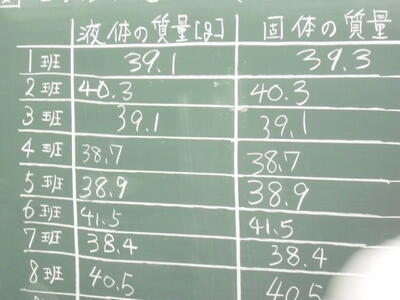 液体の質量[g] 固体の質量
1班 39.1 39.3
2班 40.3 40.3
3班 39.1 39.1
4班 38.7 38.7
5班 38.9 38.9
6班 41.5 41.5
7班 38.4 38.4
8班 40.5 40.5